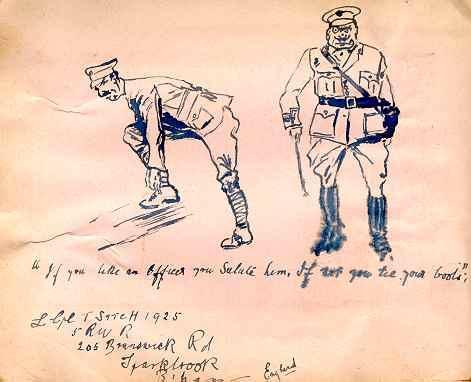 "If you like an Officer you Salute him, If not you tie your boots",
L Cpl T 1925
5 R W R
205 Brunswick Rd
Sparkbrook
B'ham England